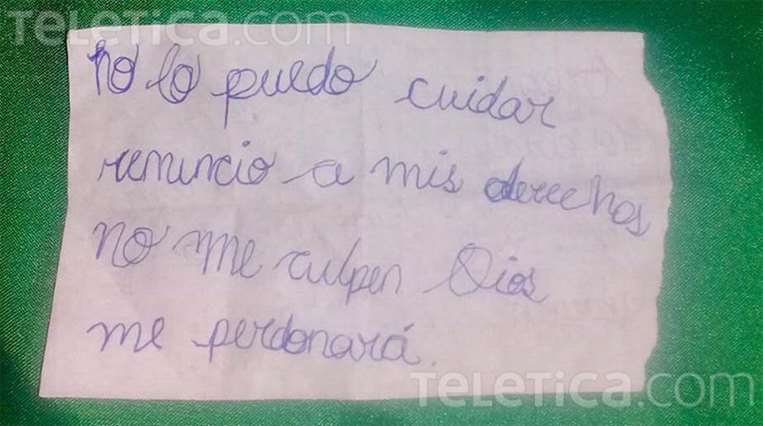 TELETICA.com
TELETICA.com
no lo puedo cuidar
renuncio a mis derechos
no me culpen Dios
me perdonará.
TELETICA.com
TELETICA.com